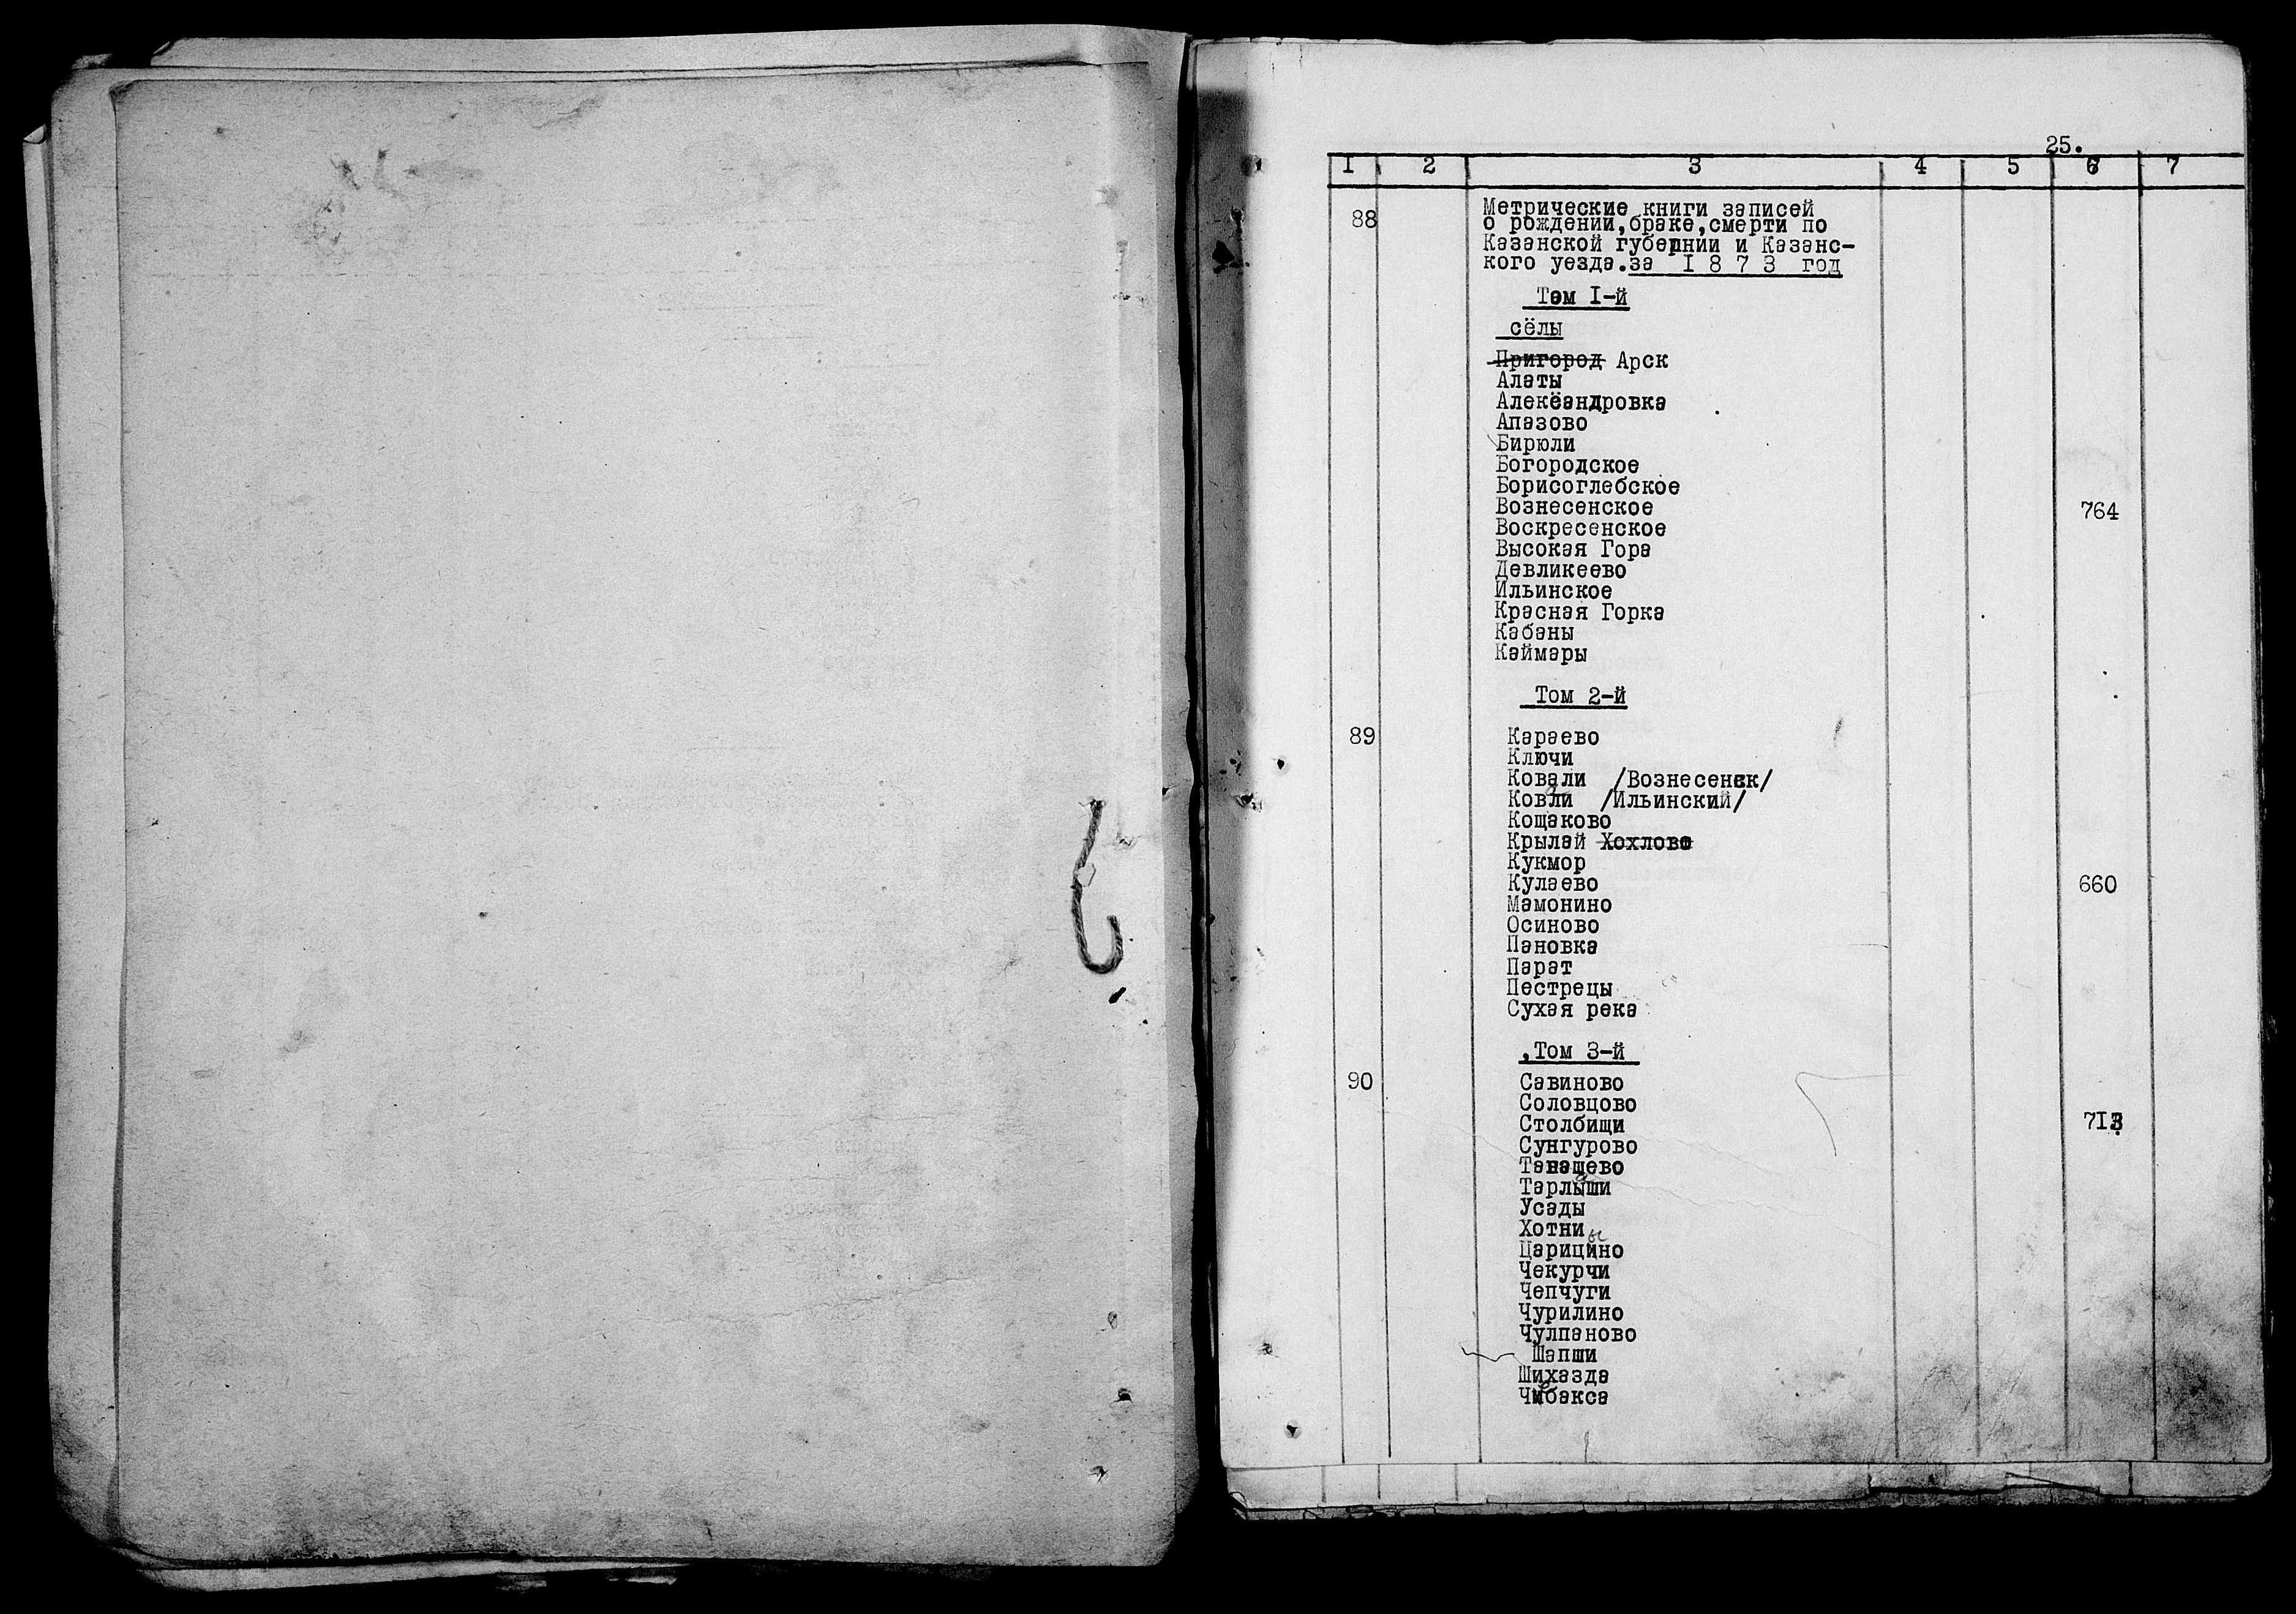 25.
1 2 3 4 5 6 7
88 Метрические книги записей
о рождении,браке,смерти по
Казанской губернии и Казанс-
кого уезда.за 1 8 7 3 год
Том I-й
сёлы
Пригород Арск
Алаты
Александровка
Апазово
Бирюли
Богородское
Борисоглебское
Вознесенское 764
Воскресенское
Высокая Гора
Девликеево
Ильинское
Красная Горка
Кабаны
Каймары
Том 2-й
89 Караево
Ключи
Ковали /Вознесенск/
Ковали /Ильинский/
Кощаково
Крылай Хохлово
Кукмор
Кулаево 660
Мамонино
Осиново
Пановка
Парат
Пестрецы
Сухая река
,Том 3-й
90 Савиново
Соловцово
Столбищи 713
Сунгурово
Танашево
Тарлаши
Усады
Хотни
Царицыно
Чекурчи
Чепчуги
Чурилино
Чулпаново
Шапши
Шихазда
Чебакса